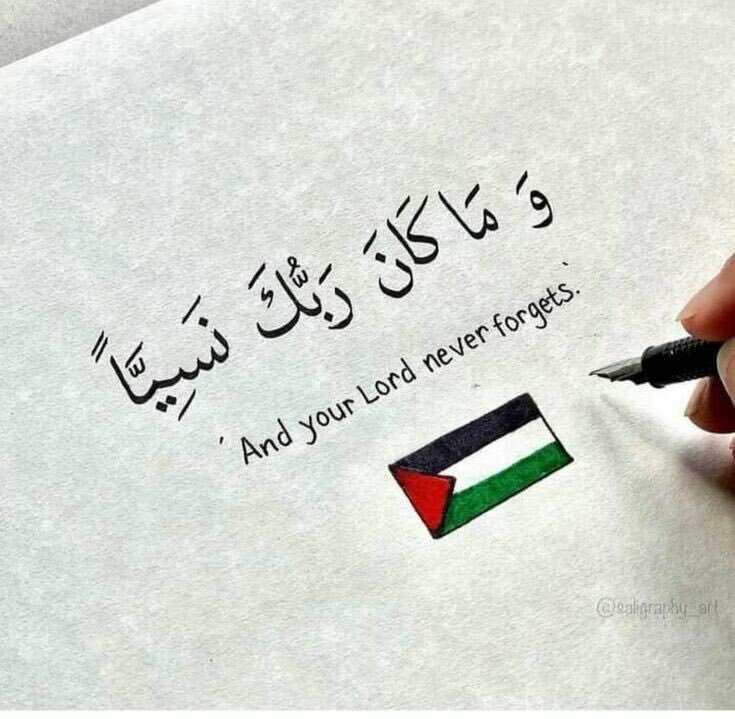 وَ مَا كَانَ رَبُّكَ نَسِيَّاً
'And your Lord never forgets.'
@saligraphy_art